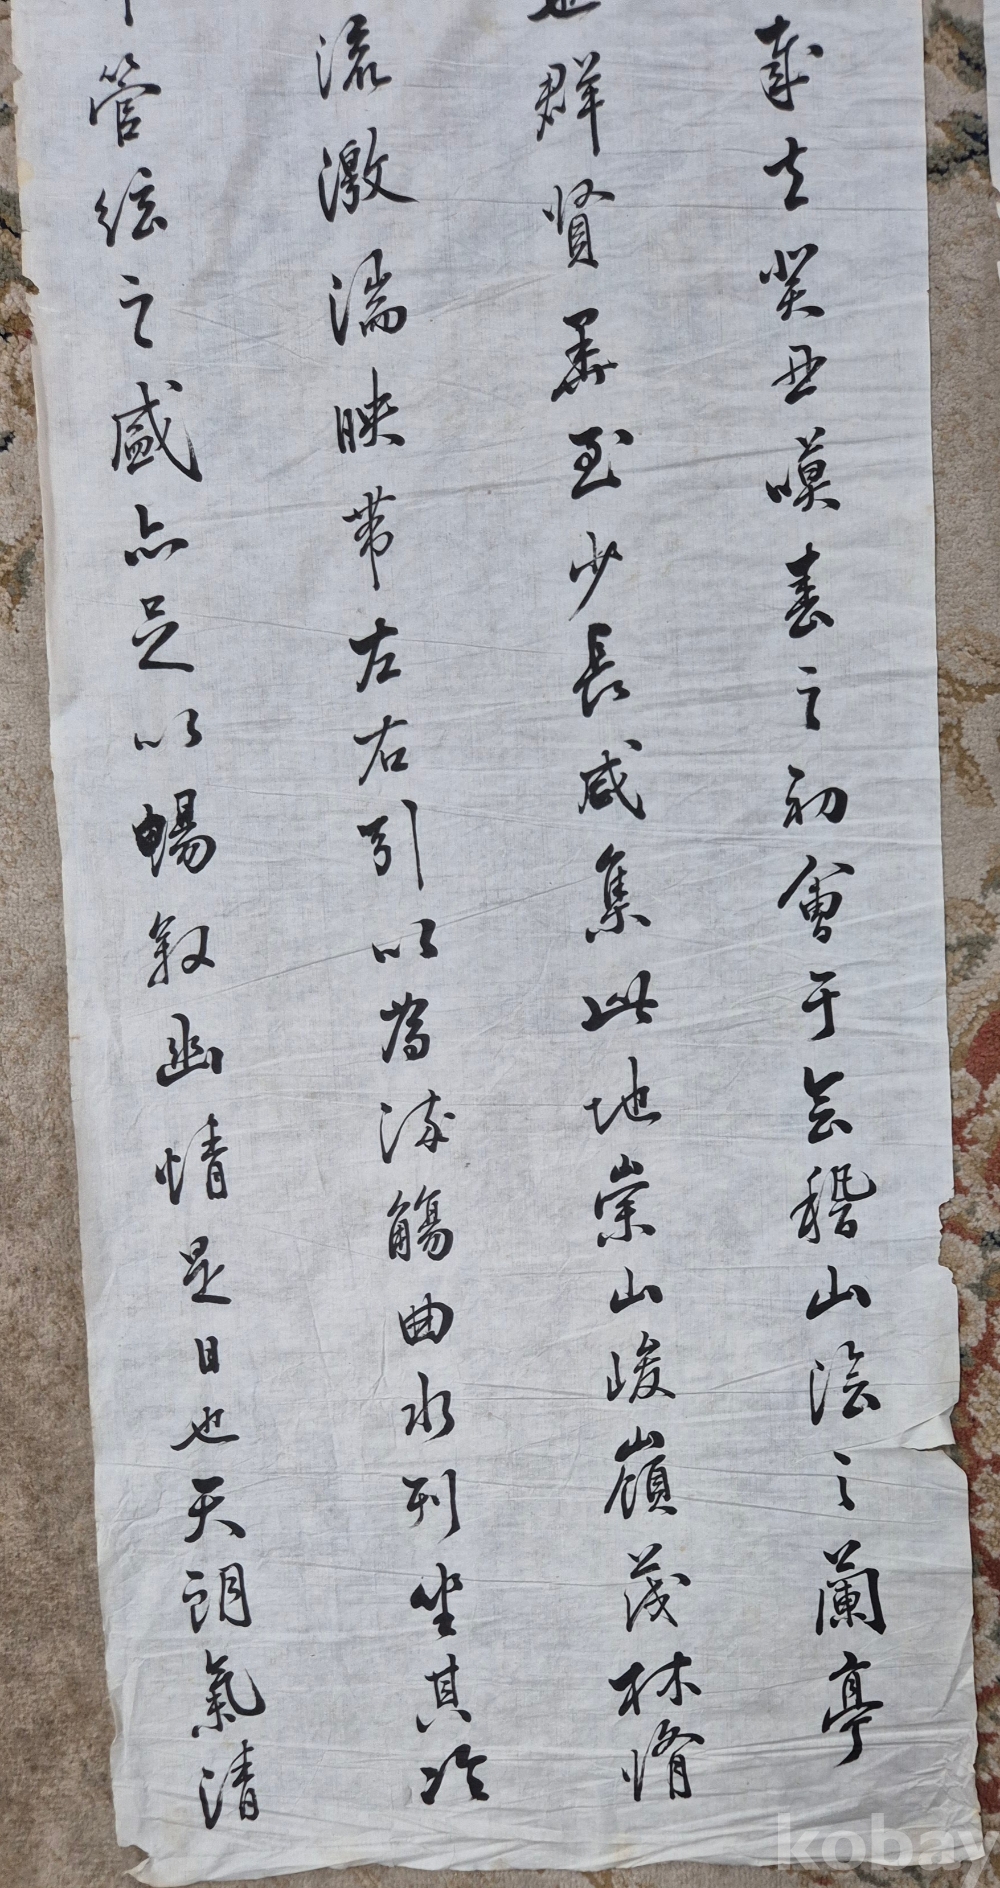 歲在癸丑暮春之初會于會稽山陰之蘭亭
也群賢畢至少長咸集此地崇山峻嶺茂林脩
流激湍映帶左右引以為流觴曲水列坐其次
管弦之盛亦足以暢敘幽情是日也天朗氣清
kobay